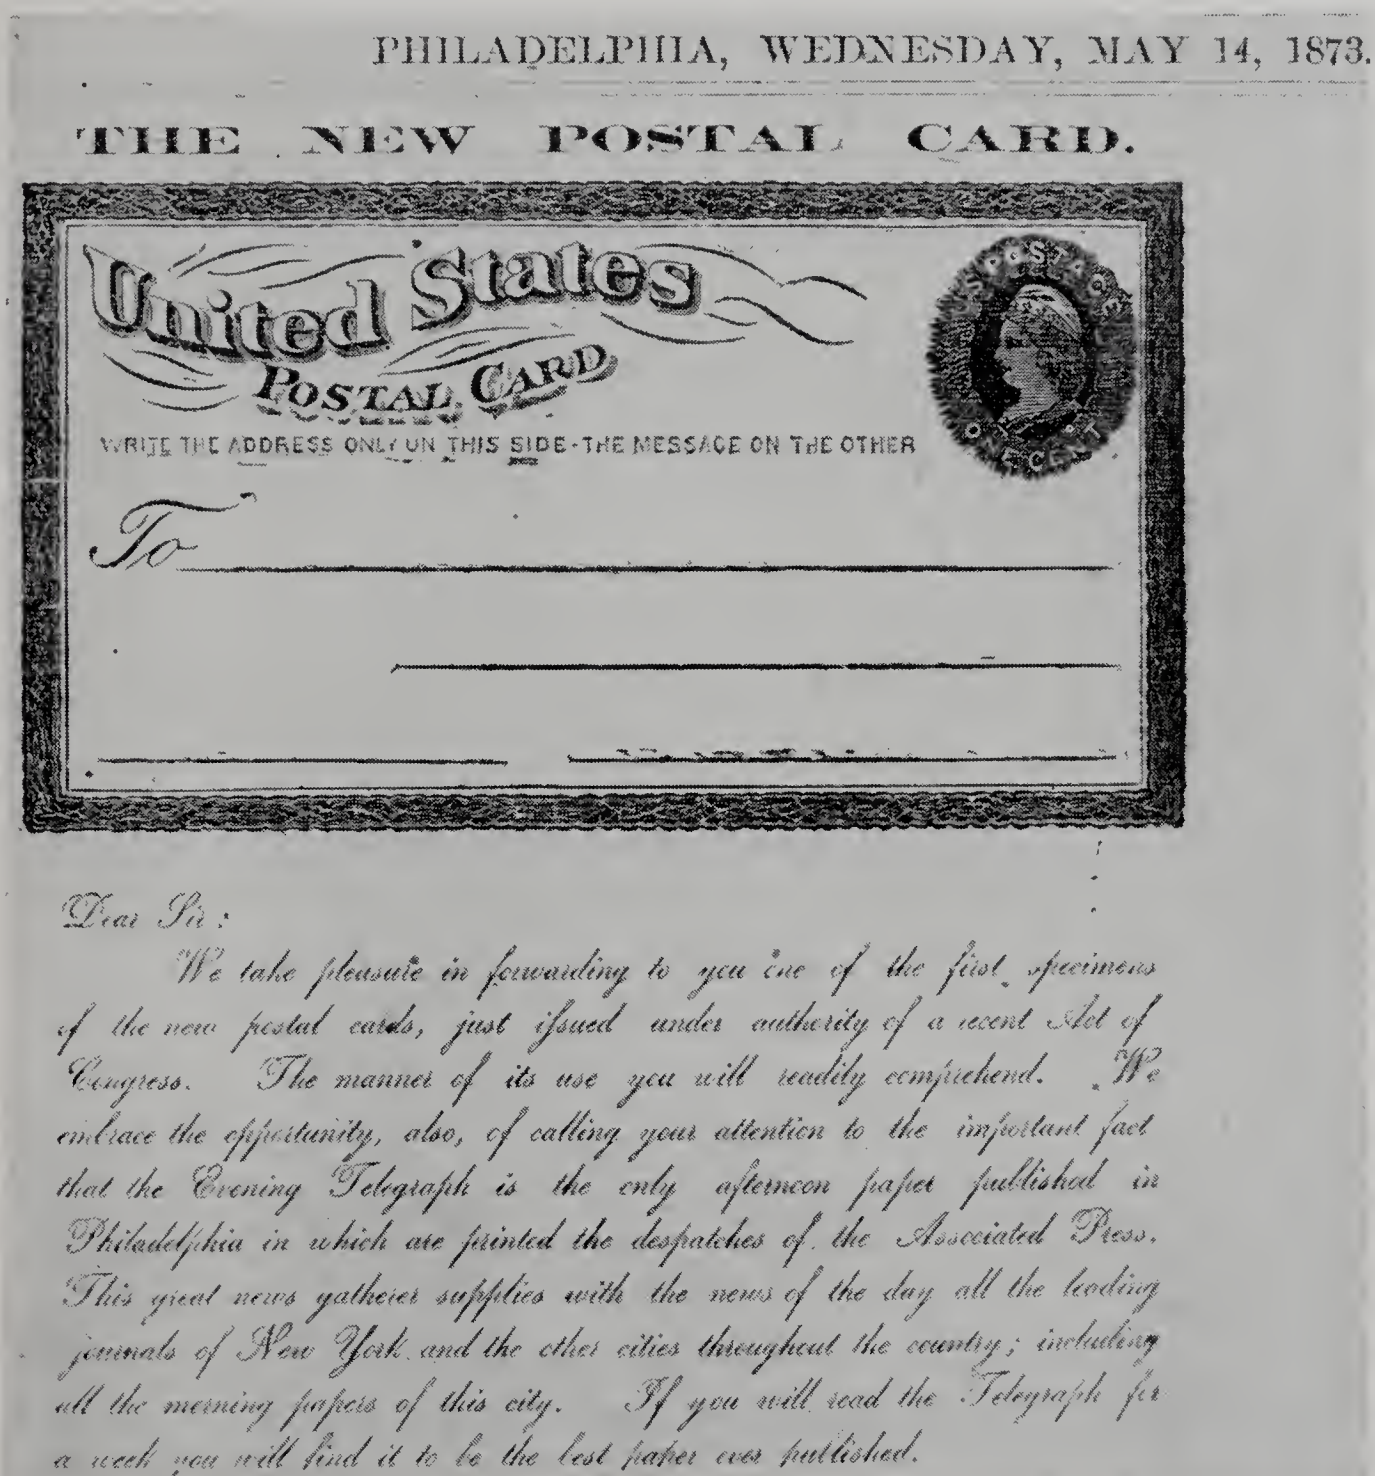 PHILADELPHIA, WEDNESDAY, MAY 14, 1873.
THE NEW POSTAL CARD.
United States
POSTAL CARD
WRITE THE ADDRESS ONLY ON THIS SIDE - THE MESSAGE ON THE OTHER
U.S. POSTAGE
ONE CENT
To
Dear Sir:
We take pleasure in forwarding to you one of the first specimens
of the new postal cards, just ifsued under authority of a recent Act of
Congress. The manner of its use you will readily comprehend. We
embrace the opportunity, also, of calling your attention to the important fact
that the Evening Telegraph is the only afternoon paper published in
Philadelphia in which are printed the despatches of the Associated Press.
This great news gatherer supplies with the news of the day all the leading
journals of New York and the other cities throughout the country; including
all the morning papers of this city. If you will read the Telegraph for
a week you will find it to be the best paper ever published.